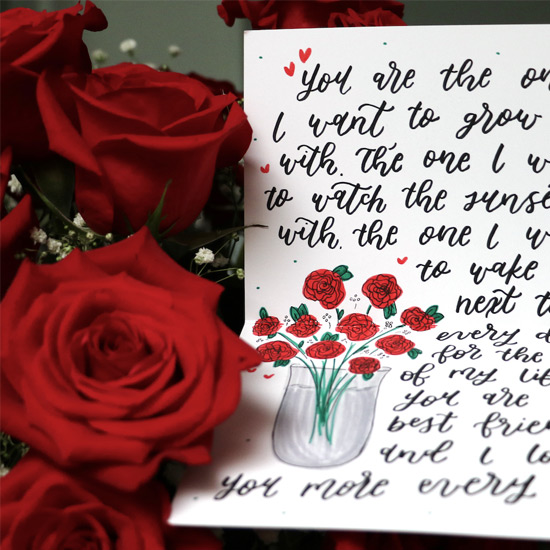 You are the on
I want to grow
with. The one I w
to watch the sunse
with. the one I w
to wake
next t
every d
for the
of my lif
you are
best frien
and I lo
you more every